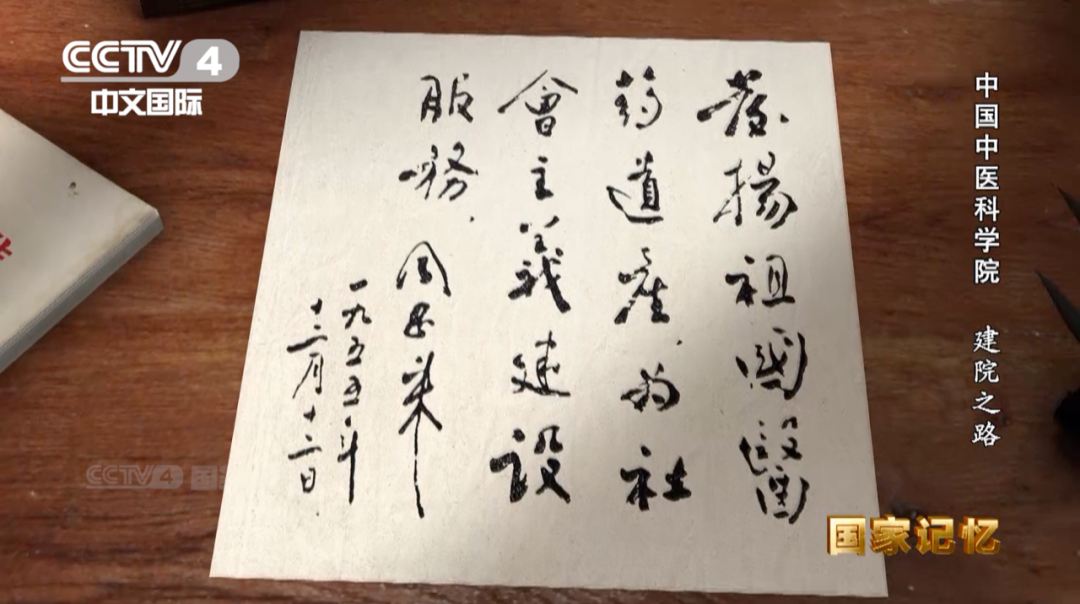 CCTV 4
中文国际
發揚祖國醫
药遺產,为社
會主義建設
服務.周恩来
一九五五年
十二月十二日
中国中医科学院 建院之路
CCTV4
国家记忆